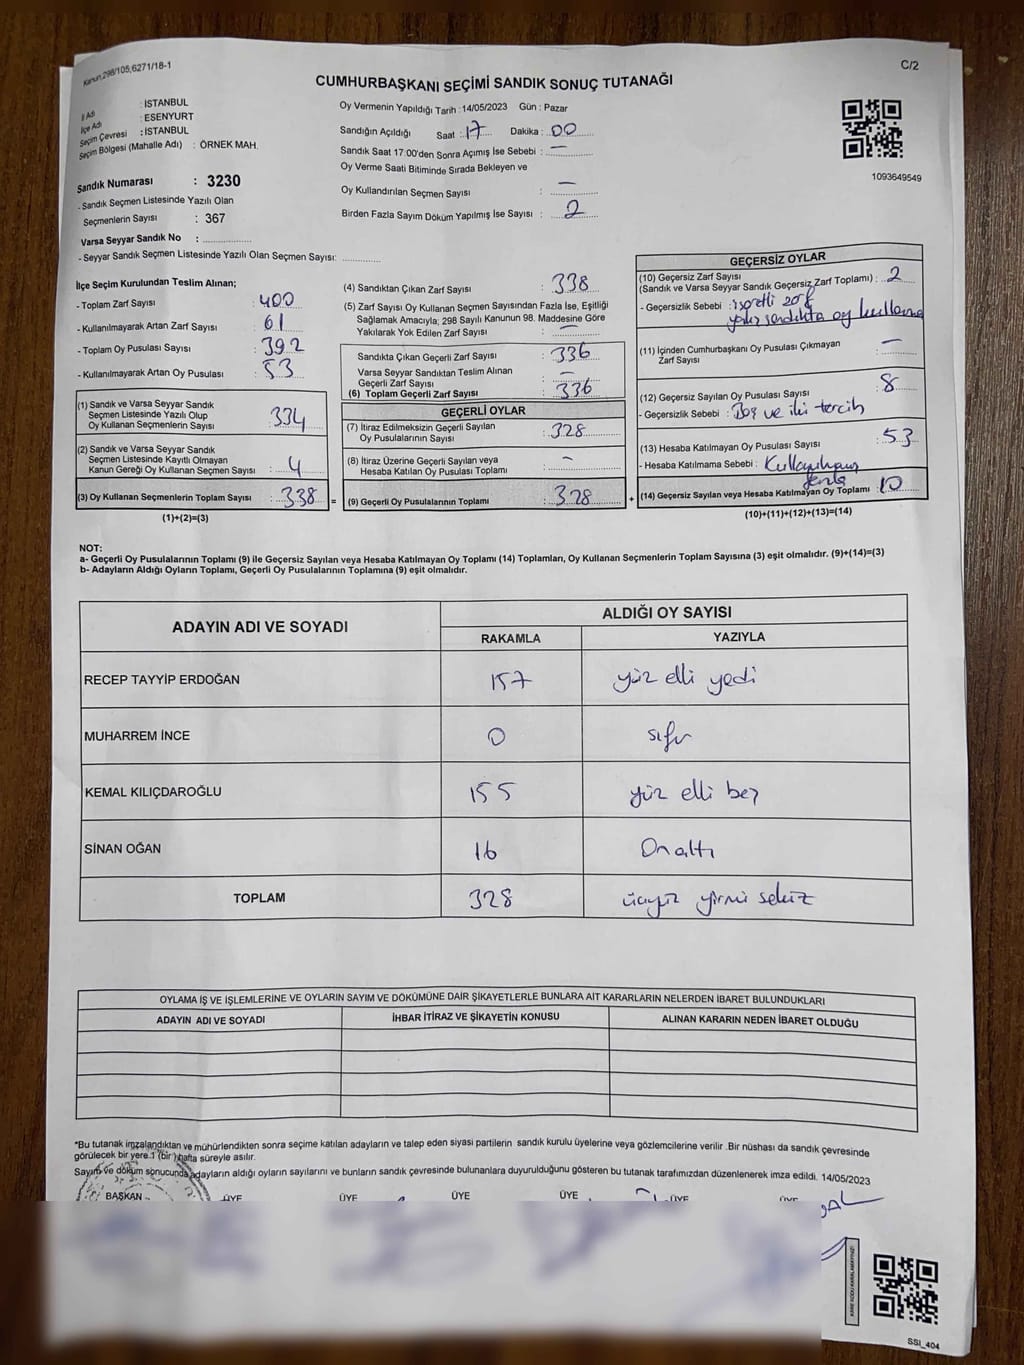 Kanun;298/105;6271/18-1
C/2
CUMHURBAŞKANI SEÇİMİ SANDIK SONUÇ TUTANAĞI
İl Adı : İSTANBUL
İlçe Adı : ESENYURT
Seçim Çevresi : İSTANBUL
Seçim Bölgesi (Mahalle Adı) : ÖRNEK MAH.
Sandık Numarası : 3230
- Sandık Seçmen Listesinde Yazılı Olan
Seçmenlerin Sayısı : 367
Varsa Seyyar Sandık No :
- Seyyar Sandık Seçmen Listesinde Yazılı Olan Seçmen Sayısı:
Oy Vermenin Yapıldığı Tarih : 14/05/2023 Gün : Pazar
Sandığın Açıldığı Saat : 17 Dakika : 00
Sandık Saat 17:00'den Sonra Açımış İse Sebebi : —
Oy Verme Saati Bitiminde Sırada Bekleyen ve
Oy Kullandırılan Seçmen Sayısı : —
Birden Fazla Sayım Döküm Yapılmış İse Sayısı : 2
1093649549
İlçe Seçim Kurulundan Teslim Alınan;
- Toplam Zarf Sayısı : 400
- Kullanılmayarak Artan Zarf Sayısı : 61
- Toplam Oy Pusulası Sayısı : 392
- Kullanılmayarak Artan Oy Pusulası : 53
(1) Sandık ve Varsa Seyyar Sandık
Seçmen Listesinde Yazılı Olup
Oy Kullanan Seçmenlerin Sayısı : 334
(2) Sandık ve Varsa Seyyar Sandık
Seçmen Listesinde Kayıtlı Olmayan
Kanun Gereği Oy Kullanan Seçmen Sayısı : 4
(3) Oy Kullanan Seçmenlerin Toplam Sayısı : 338
(1)+(2)=(3)
(4) Sandıktan Çıkan Zarf Sayısı : 338
(5) Zarf Sayısı Oy Kullanan Seçmen Sayısından Fazla İse, Eşitliği
Sağlamak Amacıyla; 298 Sayılı Kanunun 98. Maddesine Göre
Yakılarak Yok Edilen Zarf Sayısı : —
Sandıkta Çıkan Geçerli Zarf Sayısı : 336
Varsa Seyyar Sandıktan Teslim Alınan
Geçerli Zarf Sayısı : —
(6) Toplam Geçerli Zarf Sayısı : 336
GEÇERLİ OYLAR
(7) İtiraz Edilmeksizin Geçerli Sayılan
Oy Pusulalarının Sayısı : 328
(8) İtiraz Üzerine Geçerli Sayılan veya
Hesaba Katılan Oy Pusulası Toplamı : —
= (9) Geçerli Oy Pusulalarının Toplamı : 328
GEÇERSİZ OYLAR
(10) Geçersiz Zarf Sayısı
(Sandık ve Varsa Seyyar Sandık Geçersiz Zarf Toplamı) : 2
- Geçersizlik Sebebi : işaretli zarf
yanlış sandıkta oy kullanma
(11) İçinden Cumhurbaşkanı Oy Pusulası Çıkmayan
Zarf Sayısı : —
(12) Geçersiz Sayılan Oy Pusulası Sayısı : 8
- Geçersizlik Sebebi : Boş ve iki tercih
(13) Hesaba Katılmayan Oy Pusulası Sayısı : 53
- Hesaba Katılmama Sebebi :
+ (14) Geçersiz Sayılan veya Hesaba Katılmayan Oy Toplamı : 10
(10)+(11)+(12)+(13)=(14)
NOT:
a- Geçerli Oy Pusulalarının Toplamı (9) ile Geçersiz Sayılan veya Hesaba Katılmayan Oy Toplamı (14) Toplamları, Oy Kullanan Seçmenlerin Toplam Sayısına (3) eşit olmalıdır. (9)+(14)=(3)
b- Adayların Aldığı Oyların Toplamı, Geçerli Oy Pusulalarının Toplamına (9) eşit olmalıdır.
ADAYIN ADI VE SOYADI ALDIĞI OY SAYISI
RAKAMLA YAZIYLA
RECEP TAYYİP ERDOĞAN 157 yüz elli yedi
MUHARREM İNCE 0 sıfır
KEMAL KILIÇDAROĞLU 155 yüz elli beş
SİNAN OĞAN 16 Onaltı
TOPLAM 328 üçyüz yirmi sekiz
OYLAMA İŞ VE İŞLEMLERİNE VE OYLARIN SAYIM VE DÖKÜMÜNE DAİR ŞİKAYETLERLE BUNLARA AİT KARARLARIN NELERDEN İBARET BULUNDUKLARI
ADAYIN ADI VE SOYADI İHBAR İTİRAZ VE ŞİKAYETİN KONUSU ALINAN KARARIN NEDEN İBARET OLDUĞU
*Bu tutanak imzalandıktan ve mühürlendikten sonra seçime katılan adayların ve talep eden siyasi partilerin sandık kurulu üyelerine veya gözlemcilerine verilir .Bir nüshası da sandık çevresinde
görülecek bir yere 1 (bir) hafta süreyle asılır.
Sayım ve döküm sonucunda adayların aldığı oyların sayılarını ve bunların sandık çevresinde bulunanlara duyurulduğunu gösteren bu tutanak tarafımızdan düzenlenerek imza edildi. 14/05/2023
BAŞKAN ÜYE ÜYE ÜYE ÜYE ÜYE ÜYE
SSI_404